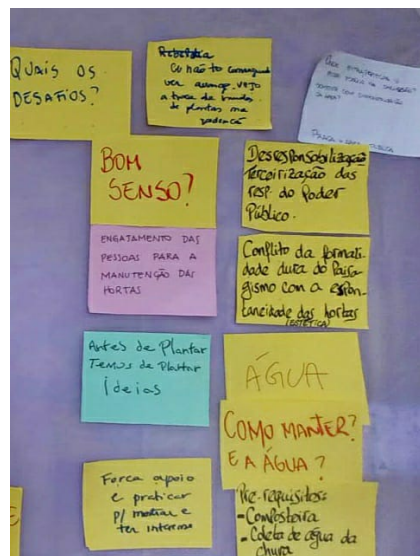 QUAIS OS
DESAFIOS?
Rebeldia
eu não to conseguindo
ver avanço. Vejo
a troca de mudas
de plantas na
BOM
SENSO?
Desresponsabilização
Terceirização das
resp. do Poder
Público.
ENGAJAMENTO DAS
PESSOAS PARA A
MANUTENÇÃO DAS
HORTAS
Conflito da formali-
dade dura do Paisa-
gismo com a espon-
taneidade das hortas
(ESTÉTICA)
Antes de Plantar
Temos de Plantar
Ideias
ÁGUA
COMO MANTER?
E A ÁGUA?
Força apoio
e praticar
p/ mostrar e
ter interesse
Pré-requisitos:
-Composteira
-Coleta de água da
chuva